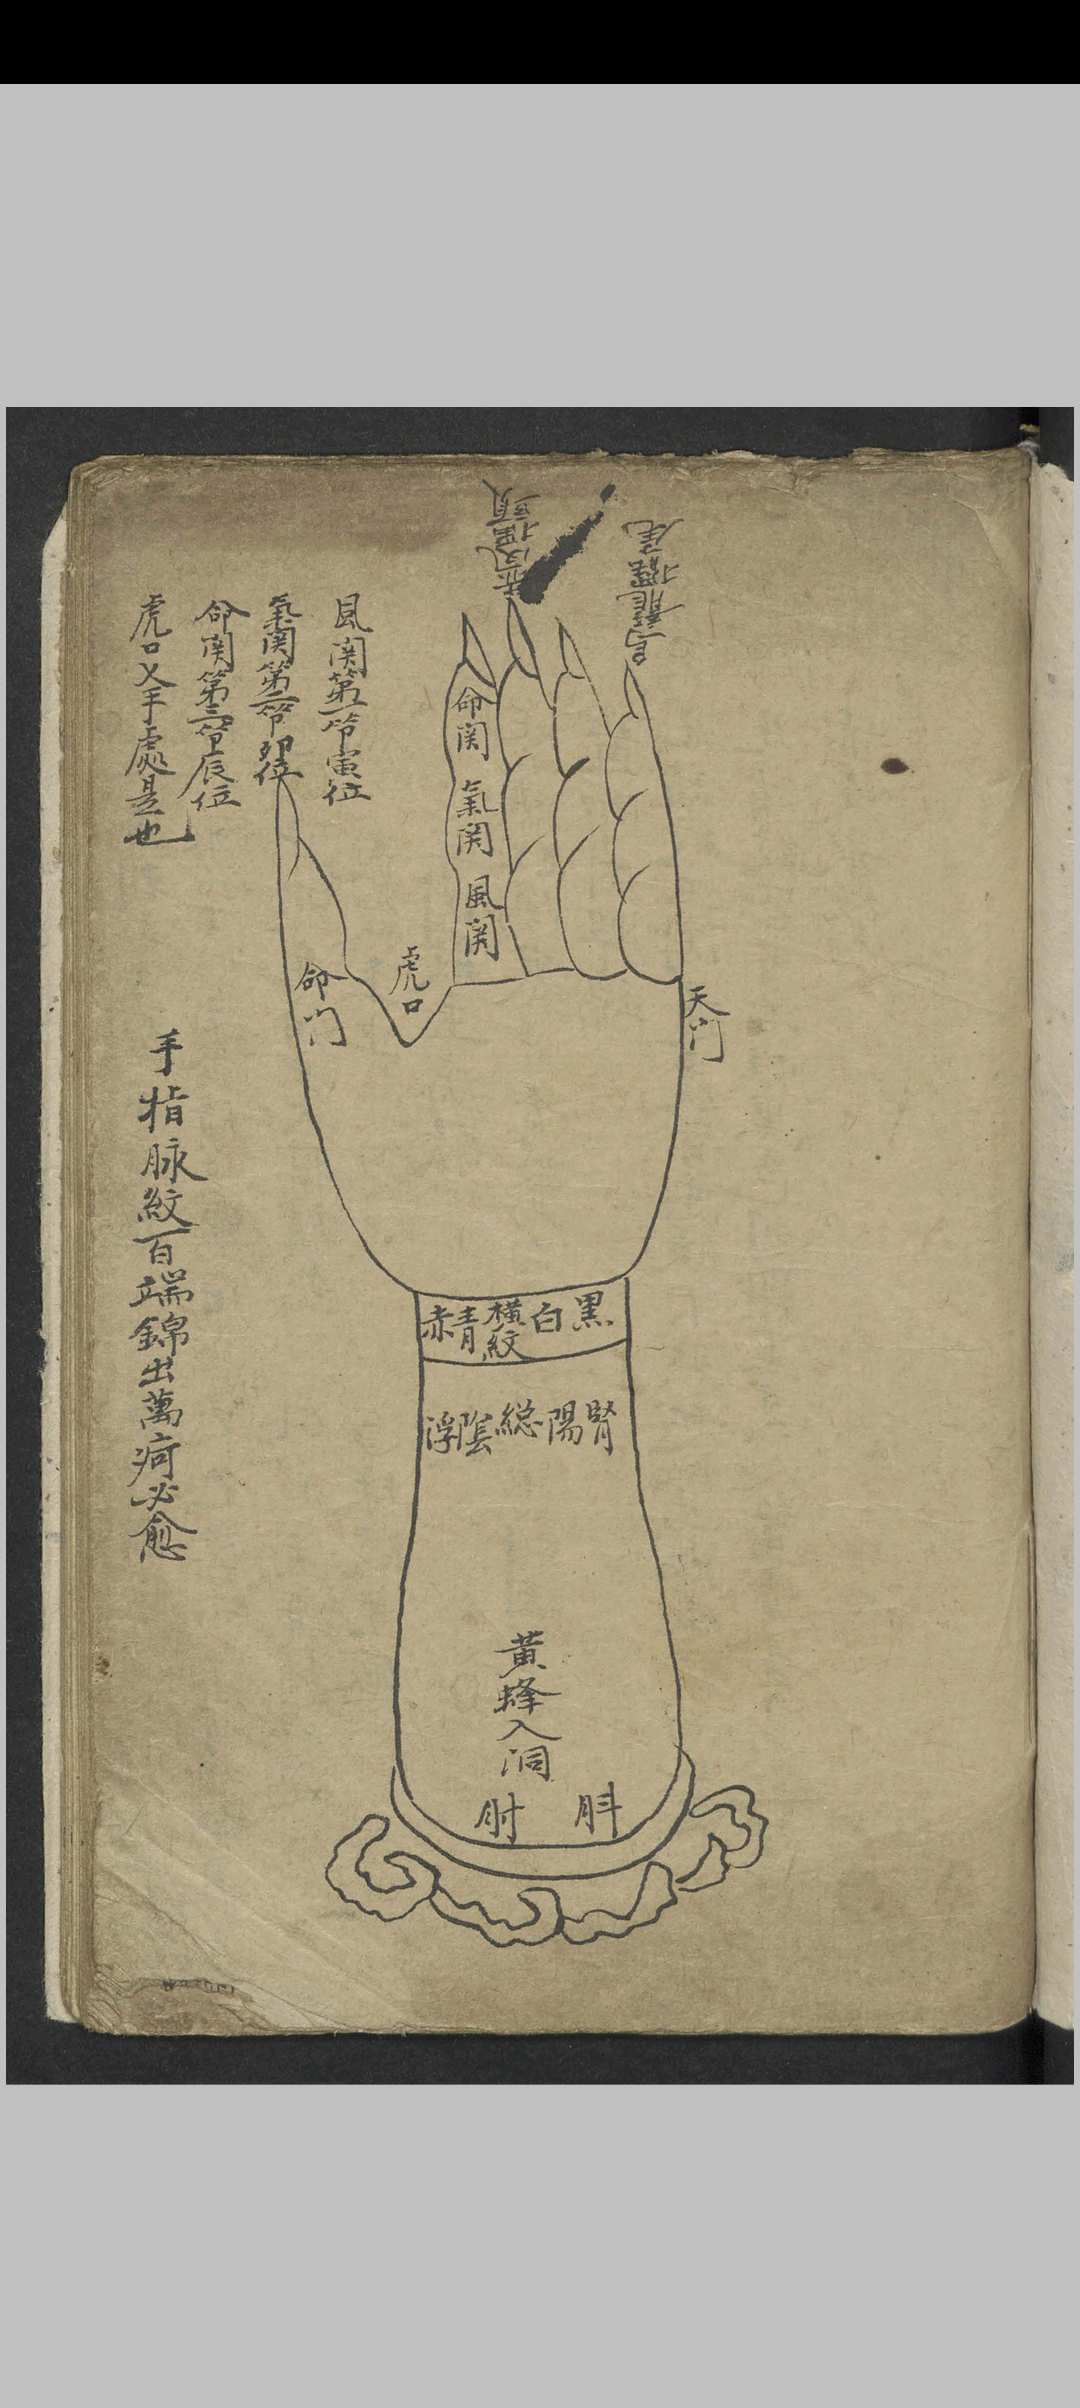 風関第一節寅位
氣関第二節卯位
命関第三節辰位
虎口乂手處是也
手指脉紋百端錦出萬疴必愈
赤鳳揺頭
烏龍擺尾
命関
氣関
風関
虎口
命门
天门
赤青横紋白黒
浮陰総陽腎
黄蜂入洞
肘
㪷